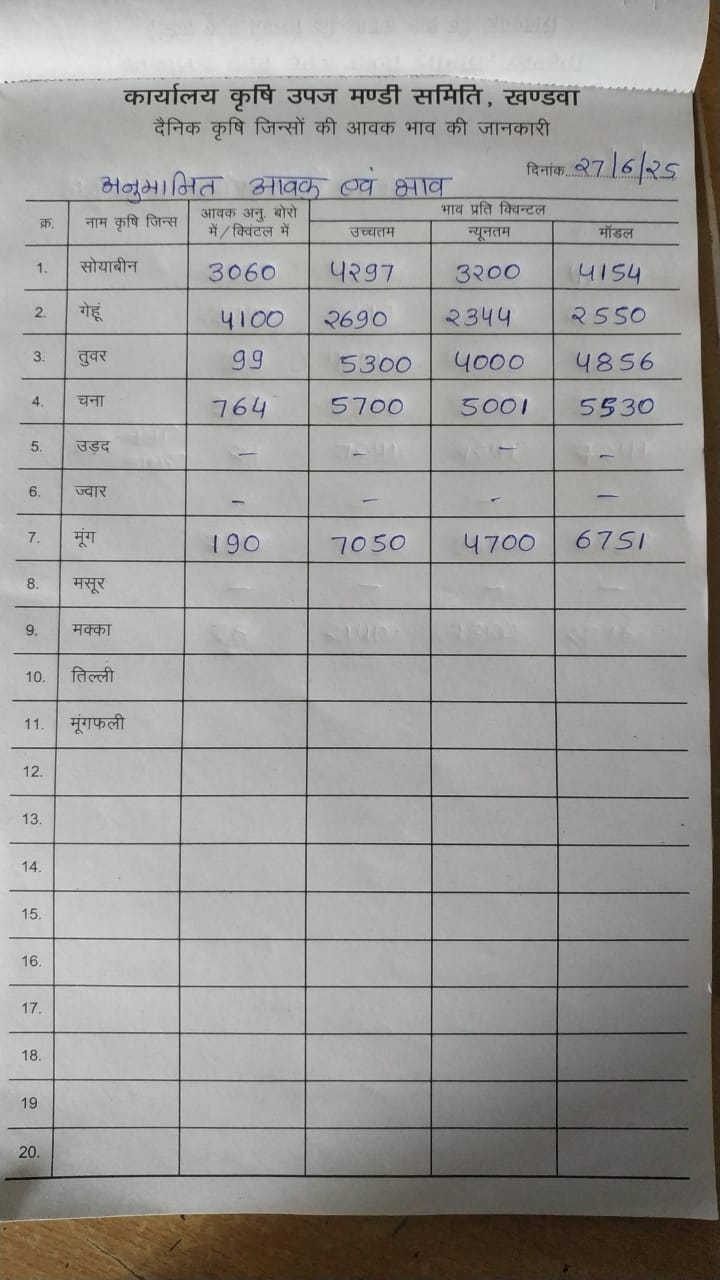 कार्यालय कृषि उपज मण्डी समिति, खण्डवा
दैनिक कृषि जिन्सों की आवक भाव की जानकारी
दिनांक 27/6/25
अनुमानित आवक एवं भाव
क्र. नाम कृषि जिन्स आवक अनु. बोरो में/क्विंटल में भाव प्रति क्विन्टल
उच्चतम न्यूनतम मॉडल
1. सोयाबीन 3060 4297 3200 4154
2. गेहूं 4100 2690 2344 2550
3. तुवर 99 5300 4000 4856
4. चना 764 5700 5001 5530
5. उड़द - - - -
6. ज्वार - - - -
7. मूंग 190 7050 4700 6751
8. मसूर
9. मक्का
10. तिल्ली
11. मूंगफली
12.
13.
14.
15.
16.
17.
18.
19
20.